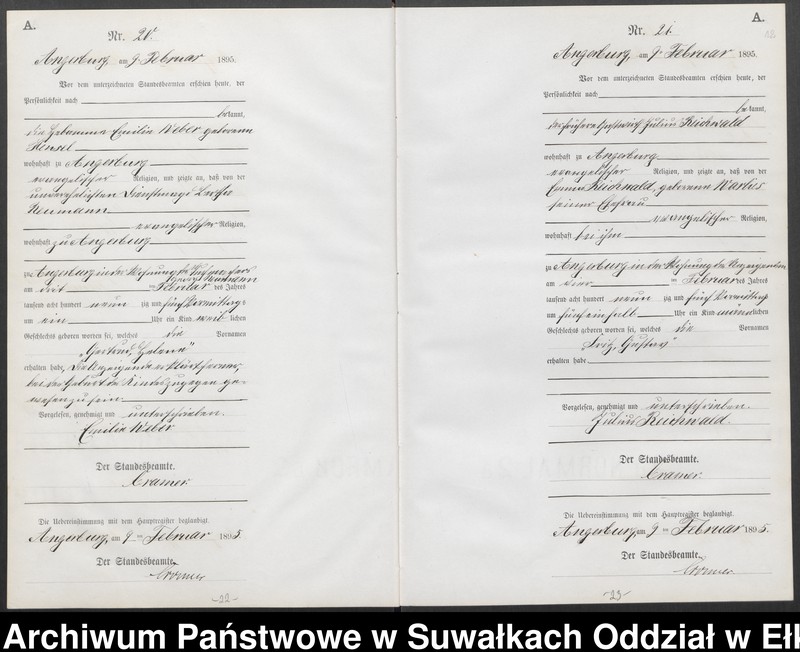 A.
Nr. 20.
Angerburg, am 9. Februar 1895.
Vor dem unterzeichneten Standesbeamten erschien heute, der
Persönlichkeit nach
bekannt,
die Hebamme Emilie Weber geborene
Hensel
wohnhaft zu Angerburg
evangelischer Religion, und zeigte an, daß von der
unverehelichten Dienstmagd
Neumann
evangelischer Religion,
wohnhaft zu Angerburg
zu Angerburg in der Wohnung des
Neumann
am drei ten Februar des Jahres
tausend acht hundert neun zig und fünf Vormittags
um ein Uhr ein Kind weib lichen
Geschlechts geboren worden sei, welches die Vornamen
„Gertrud, Helene"
erhalten habe. Die Anzeigende erklärt ferner,
bei der Geburt des Kindes zugegen ge-
wesen zu sein.
Vorgelesen, genehmigt und unterschrieben.
Emilie Weber
Der Standesbeamte.
Cramer.
Die Uebereinstimmung mit dem Hauptregister beglaubigt.
Angerburg, am 9 ten Februar 1895.
Der Standesbeamte.
Cramer
-22-
A.
Nr. 21.
Angerburg, am 9. Februar 1895.
Vor dem unterzeichneten Standesbeamten erschien heute, der
Persönlichkeit nach
bekannt,
der frühere Gastwirth Julius Reichwald
wohnhaft zu Angerburg
evangelischer Religion, und zeigte an, daß von der
Reichwald, geborene
seiner Ehefrau
evangelischer Religion,
wohnhaft bei ihm
zu Angerburg in der Wohnung des Anzeigenden
am vier ten Februar des Jahres
tausend acht hundert neun zig und fünf Vormittags
um fünf einhalb Uhr ein Kind männ lichen
Geschlechts geboren worden sei, welches die Vornamen
Fritz, Gustav"
erhalten habe
Vorgelesen, genehmigt und unterschrieben.
Julius Reichwald.
Der Standesbeamte.
Cramer.
Die Uebereinstimmung mit dem Hauptregister beglaubigt.
Angerburg, am 9 ten Februar 1895.
Der Standesbeamte.
Cramer.
-23-
Archiwum Państwowe w Suwałkach Oddział w Ełk